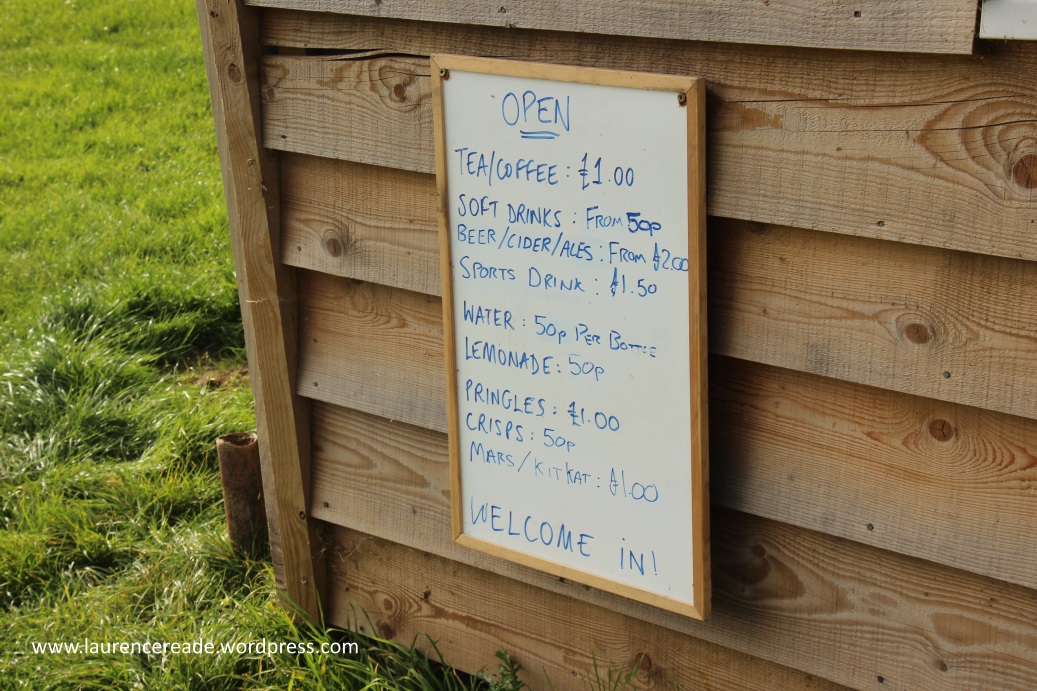 OPEN
TEA/COFFEE : £1.00
SOFT DRINKS : FROM 50p
BEER/CIDER/ALES : FROM £2.00
SPORTS DRINK : £1.50
WATER : 50p PER BOTTLE
LEMONADE : 50p
PRINGLES : £1.00
CRISPS : 50p
MARS/KITKAT : £1.00
WELCOME iN!
www.laurencereade.wordpress.com